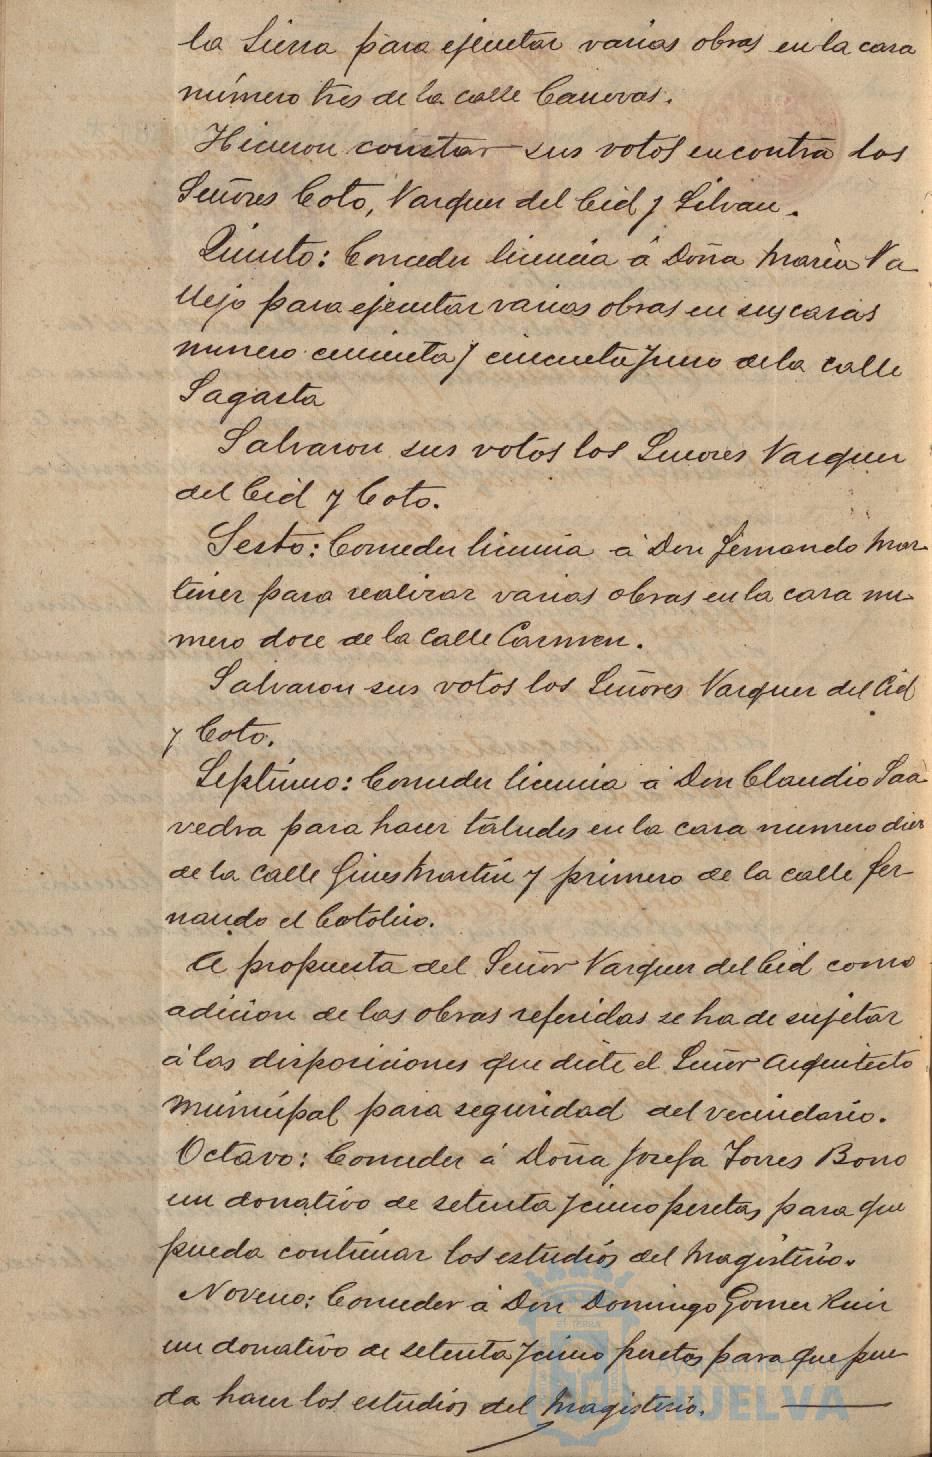 la Sierra para ejecutar varias obras en la casa
número tres de la calle Canovas.
Hicieron constar sus votos en contra los
Señores Coto, Vazquez del Cid y Silvan.
Quinto: Conceder licencia á Doña María Va
llejo para ejecutar varias obras en sus casas
numero cincuenta y cincuenta y uno de la calle
Sagasta
Salvaron sus votos los Señores Vazquez
del Cid y Coto.
Sesto: Conceder licencia á Don Fernando Mar-
tinez para realizar varias obras en la casa nu-
mero doce de la calle Carmen.
Salvaron sus votos los Señores Vazquez del Cid
y Coto.
Septimo: Conceder licencia á Don Claudio Saa-
vedra para hacer taludes en la casa numero diez
de la calle Gines Martín y primero de la calle Fer-
nando el Catolico.
A propuesta del Señor Vazquez del Cid como
adicion de las obras referidas se ha de sujetar
á las disposiciones que dicte el Señor Arquitecto
Municipal para seguridad del vecindario.
Octavo: Conceder á Doña Josefa Torres Bono
un donativo de setenta y cinco pesetas para que
pueda continuar los estudios del Magisterio.
Noveno: Conceder á Don Domingo Gomez Ruiz
un donativo de setenta y cinco pesetas para que pue-
da hacer los estudios del Magisterio.
Ayuntamiento de
HUELVA